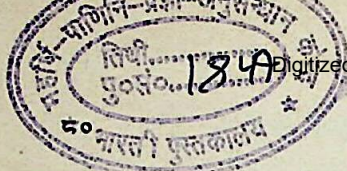 महर्षि-पाणिनि-प्रज्ञा-अनुसन्धान
तिथी...............
पु०सं०.... 184
Digitized
भारती पुस्तकालय